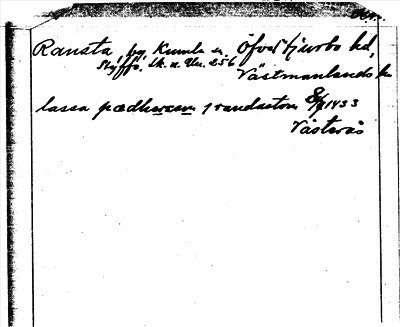 Ransta, by, Kumla sn. Öfvertjurbo hd,
Styffe, Sk. u. Un. 256 Västmanlands
lassa pædherssen j randastom 8/9 1433
Västerås